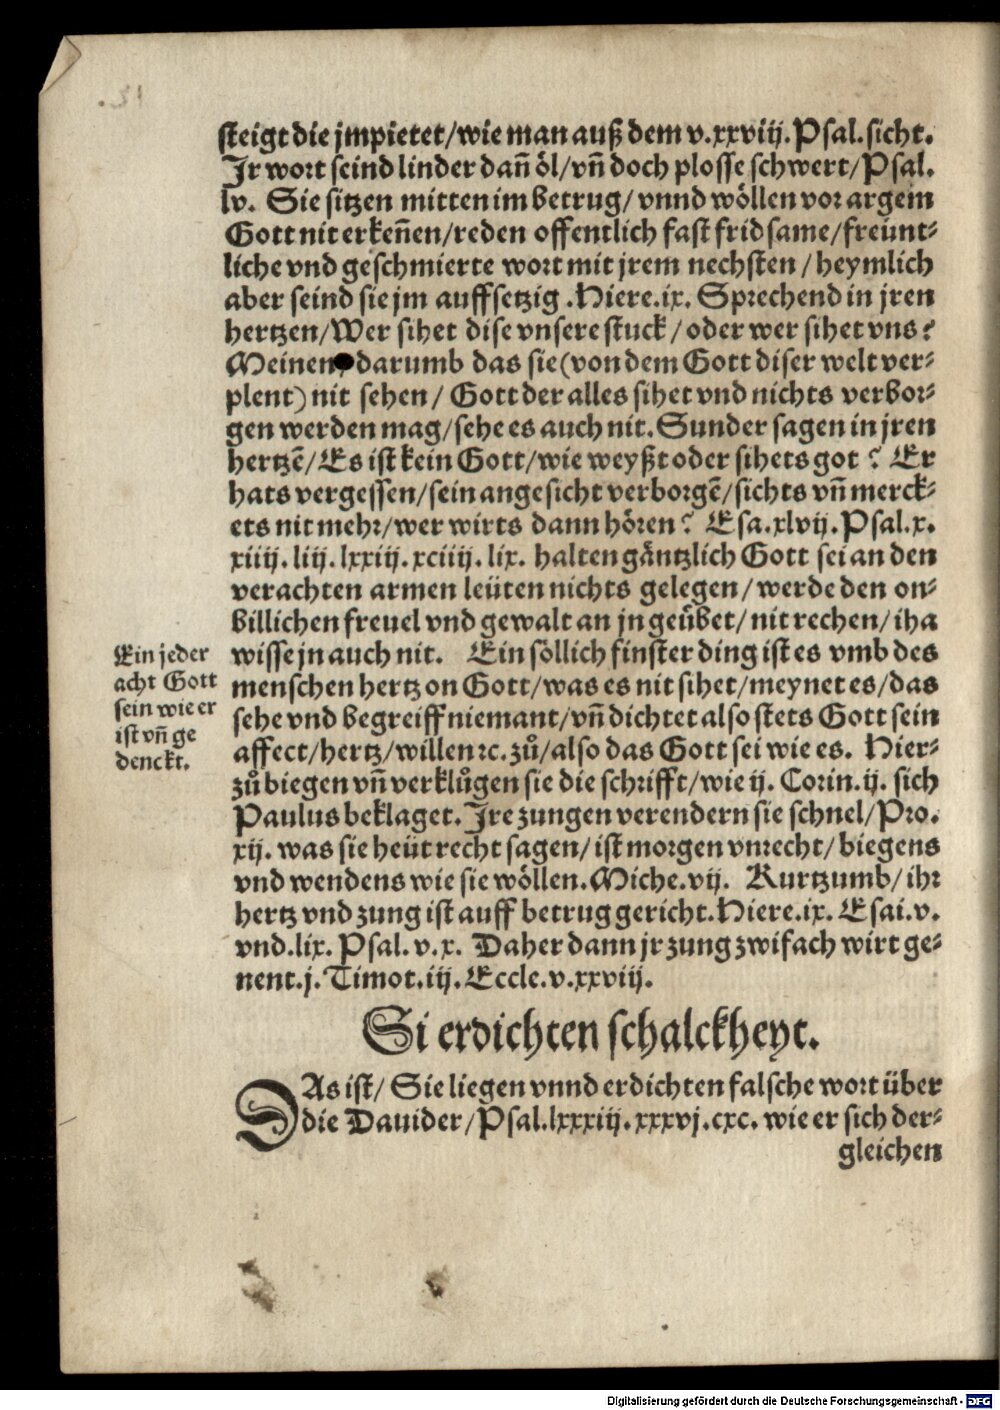 steigt die jmpietet/wie man auß dem v.xxviij.Psal.sicht.
Jr wort seind linder dañ öl/vñ doch plosse schwert/Psal.
lv. Sie sitzen mitten im betrug/ vnnd wöllen vor argem
Gott nit erkeñen/reden offentlich fast fridsame/freünt⸗
liche vnd geschmierte wort mit jrem nechsten/heymlich
aber seind sie jm auffsetzig.Hiere.ix. Sprechend in jren
hertzen/Wer sihet dise vnsere stuck/oder wer sihet vns?
Meinen darumb das sie(von dem Gott diser welt ver⸗
plent)nit sehen/ Gott der alles sihet vnd nichts verbor⸗
gen werden mag/sehe es auch nit.Sunder sagen in jren
hertzẽ/Es ist kein Gott/wie weyßt oder sihets got? Er
hats vergessen/sein angesicht verborgẽ/sichts vñ merck⸗
ets nit mehr/wer wirts dann hören? Esa.xlvij.Psal.x.
xiiij.liij.lxxiij.xciiij.lix. halten gäntzlich Gott sei an den
verachten armen leüten nichts gelegen/werde den on⸗
billichen freuel vnd gewalt an jn geübet/nit rechen/iha
Ein jeder
acht Gott
sein wie er
ist vñ ge
denckt.
wisse jn auch nit. Ein söllich finster ding ist es vmb des
menschen hertz on Gott/was es nit sihet/meynet es/das
sehe vnd begreiff niemant/vñ dichtet also stets Gott sein
affect/hertz/willen ꝛc. zů/also das Gott sei wie es. Hier⸗
zů biegen vñ verklůgen sie die schrifft/wie ij. Corin.ij. sich
Paulus beklaget.Jre zungen verendern sie schnel/Pro.
xij. was sie heüt recht sagen/ist morgen vnrecht/biegens
vnd wendens wie sie wöllen.Miche.vij. Kurtzumb/ihr
hertz vnd zung ist auff betrug gericht.Hiere.ix. Esai.v.
vnd.lix. Psal.v.x. Daher dann jr zung zwifach wirt ge⸗
nent.j.Timot.iij.Eccle.v.xxviij.
Si erdichten schalckheyt.
DAs ist/ Sie liegen vnnd erdichten falsche wort über
die Dauider/Psal.lxxxiij.xxxvj.cxc. wie er sich der⸗
gleichen
Digitalisierung gefördert durch die Deutsche Forschungsgemeinschaft - DFG